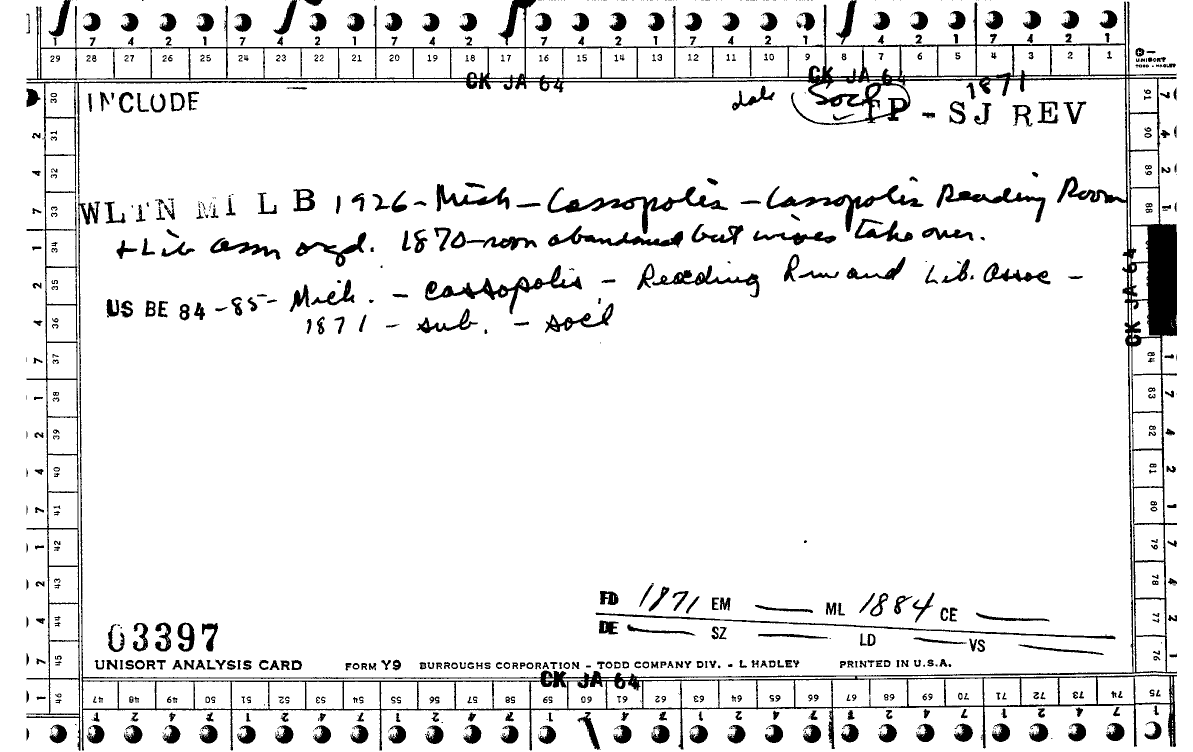 7 4 2 1 7 4 2 1 7 4 2 1 7 4 2 1 7 4 2 1 7 4 2 1 7 4 2 1
29 28 27 26 25 24 23 22 21 20 19 18 17 16 15 14 13 12 11 10 9 8 7 6 5 4 3 2 1
UNISORT
TODD - HADLEY
CK JA 64 CK JA 64
INCLUDE date Socl 1871
TP - SJ REV
WLTN MI L B 1926 - Mich - Cassopolis - Cassopolis Reading Room
+ Lib assn orgd. 1870 - room abandoned but wives take over.
US BE 84-85 - Mich. - Cassopolis - Reading Rm and Lib. Assoc -
1871 - sub. - socl
CK JA 64
30 31 32 33 34 35 36 37 38 39 40 41 42 43 44 45 46
91 90 89 88 84 83 82 81 80 79 78 77 76 75
FD 1871 EM — ML 1884 CE —
DE — SZ — LD — VS —
03397
UNISORT ANALYSIS CARD FORM Y9 BURROUGHS CORPORATION - TODD COMPANY DIV. - L HADLEY PRINTED IN U.S.A.
CK JA 64
47 48 49 50 51 52 53 54 55 56 57 58 59 60 61 62 63 64 65 66 67 68 69 70 71 72 73 74